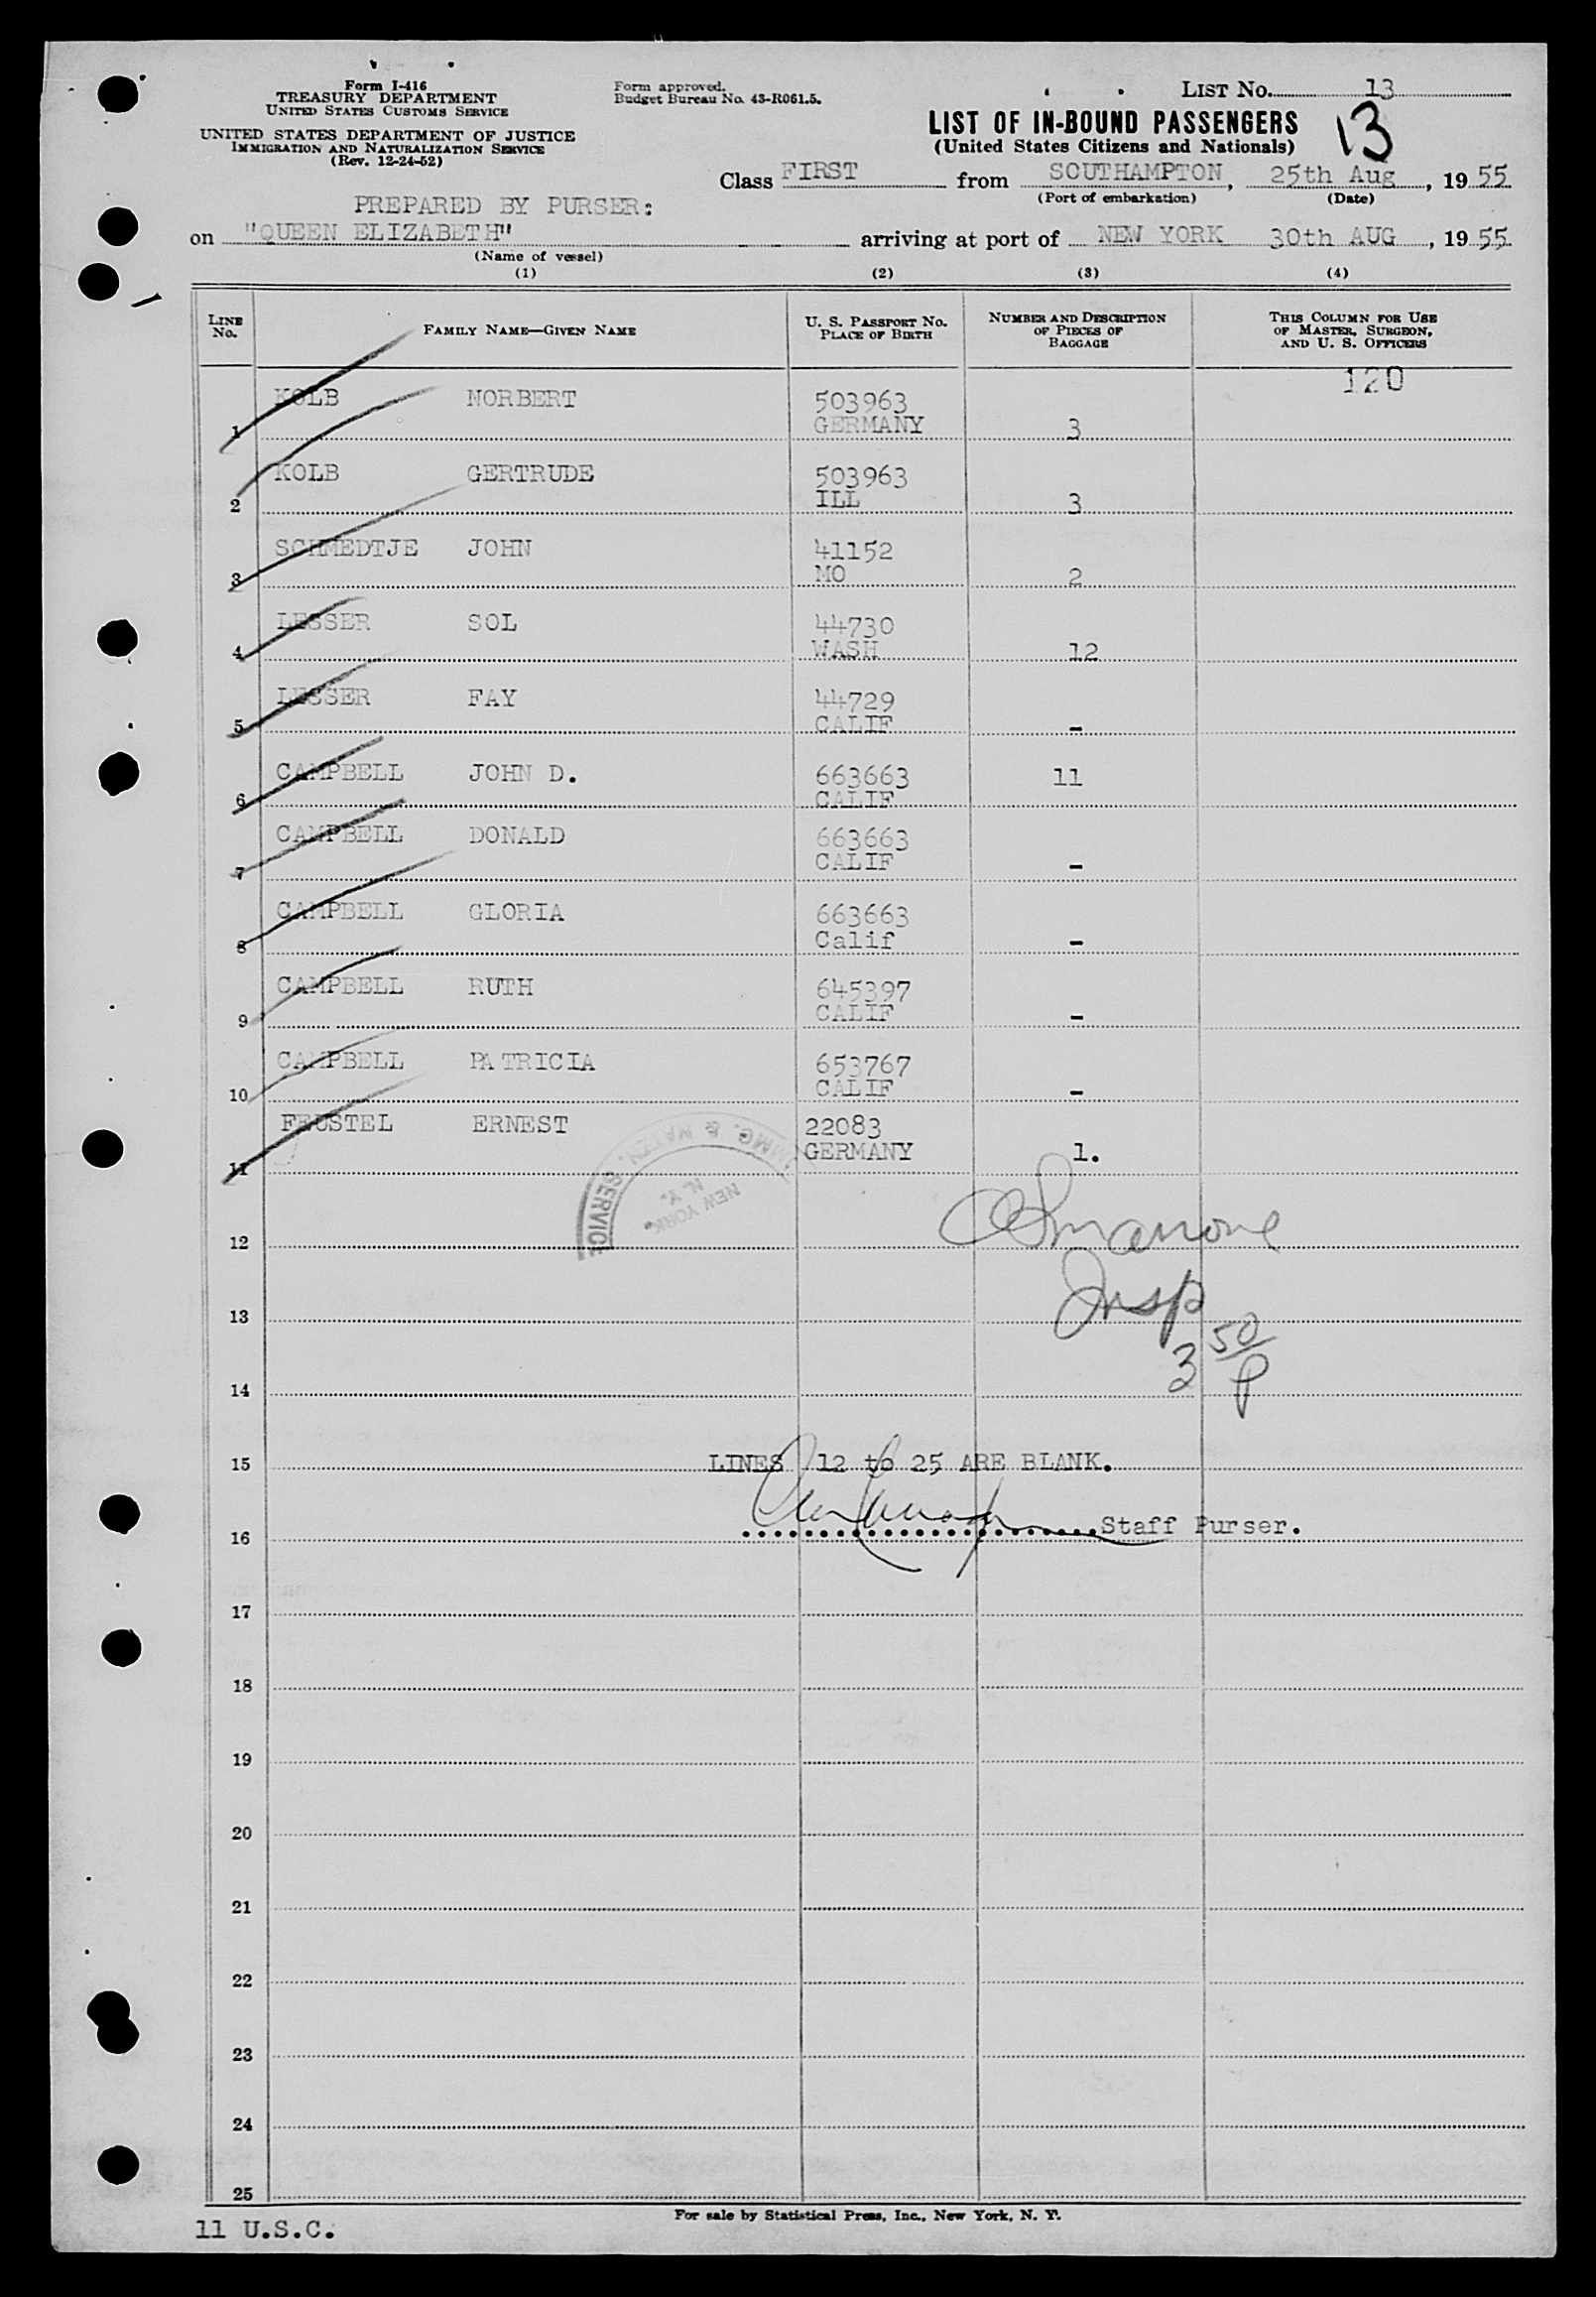 Form I-416
TREASURY DEPARTMENT
UNITED STATES CUSTOMS SERVICE
UNITED STATES DEPARTMENT OF JUSTICE
IMMIGRATION AND NATURALIZATION SERVICE
(Rev. 12-24-52)
Form approved.
Budget Bureau No. 43-R061.5.
LIST No. 13
LIST OF IN-BOUND PASSENGERS
13
(United States Citizens and Nationals)
Class FIRST from SOUTHAMPTON, 25th Aug, 1955
(Port of embarkation) (Date)
PREPARED BY PURSER:
on "QUEEN ELIZABETH" arriving at port of NEW YORK 30th AUG, 1955
(Name of vessel)
(1) (2) (3) (4)
LINE No. FAMILY NAME—GIVEN NAME U. S. PASSPORT No. PLACE OF BIRTH NUMBER AND DESCRIPTION OF PIECES OF BAGGAGE THIS COLUMN FOR USE OF MASTER, SURGEON, AND U. S. OFFICERS
120
KOLB NORBERT 503963
1 GERMANY 3
KOLB GERTRUDE 503963
2 ILL 3
SCHMEDTJE JOHN 41152
3 MO 2
LESSER SOL 44730
4 WASH 12
LESSER FAY 44729
5 CALIF -
CAMPBELL JOHN D. 663663 11
6 CALIF
CAMPBELL DONALD 663663
7 CALIF -
CAMPBELL GLORIA 663663
8 Calif -
CAMPBELL RUTH 645397
9 CALIF -
CAMPBELL PATRICIA 653767
10 CALIF -
FEUSTEL ERNEST 22083
11 GERMANY 1.
IMMG. & NATZN. SERVICE
NEW YORK, N. Y.
12
Insp
13
3 50/P
14
15 LINES 12 to 25 ARE BLANK.
16 Staff Purser.
17
18
19
20
21
22
23
24
25
For sale by Statistical Press, Inc., New York, N. Y.
11 U.S.C.